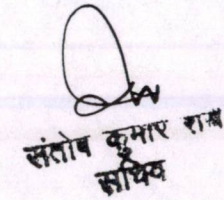 संतोष कुमार राख
सचिव